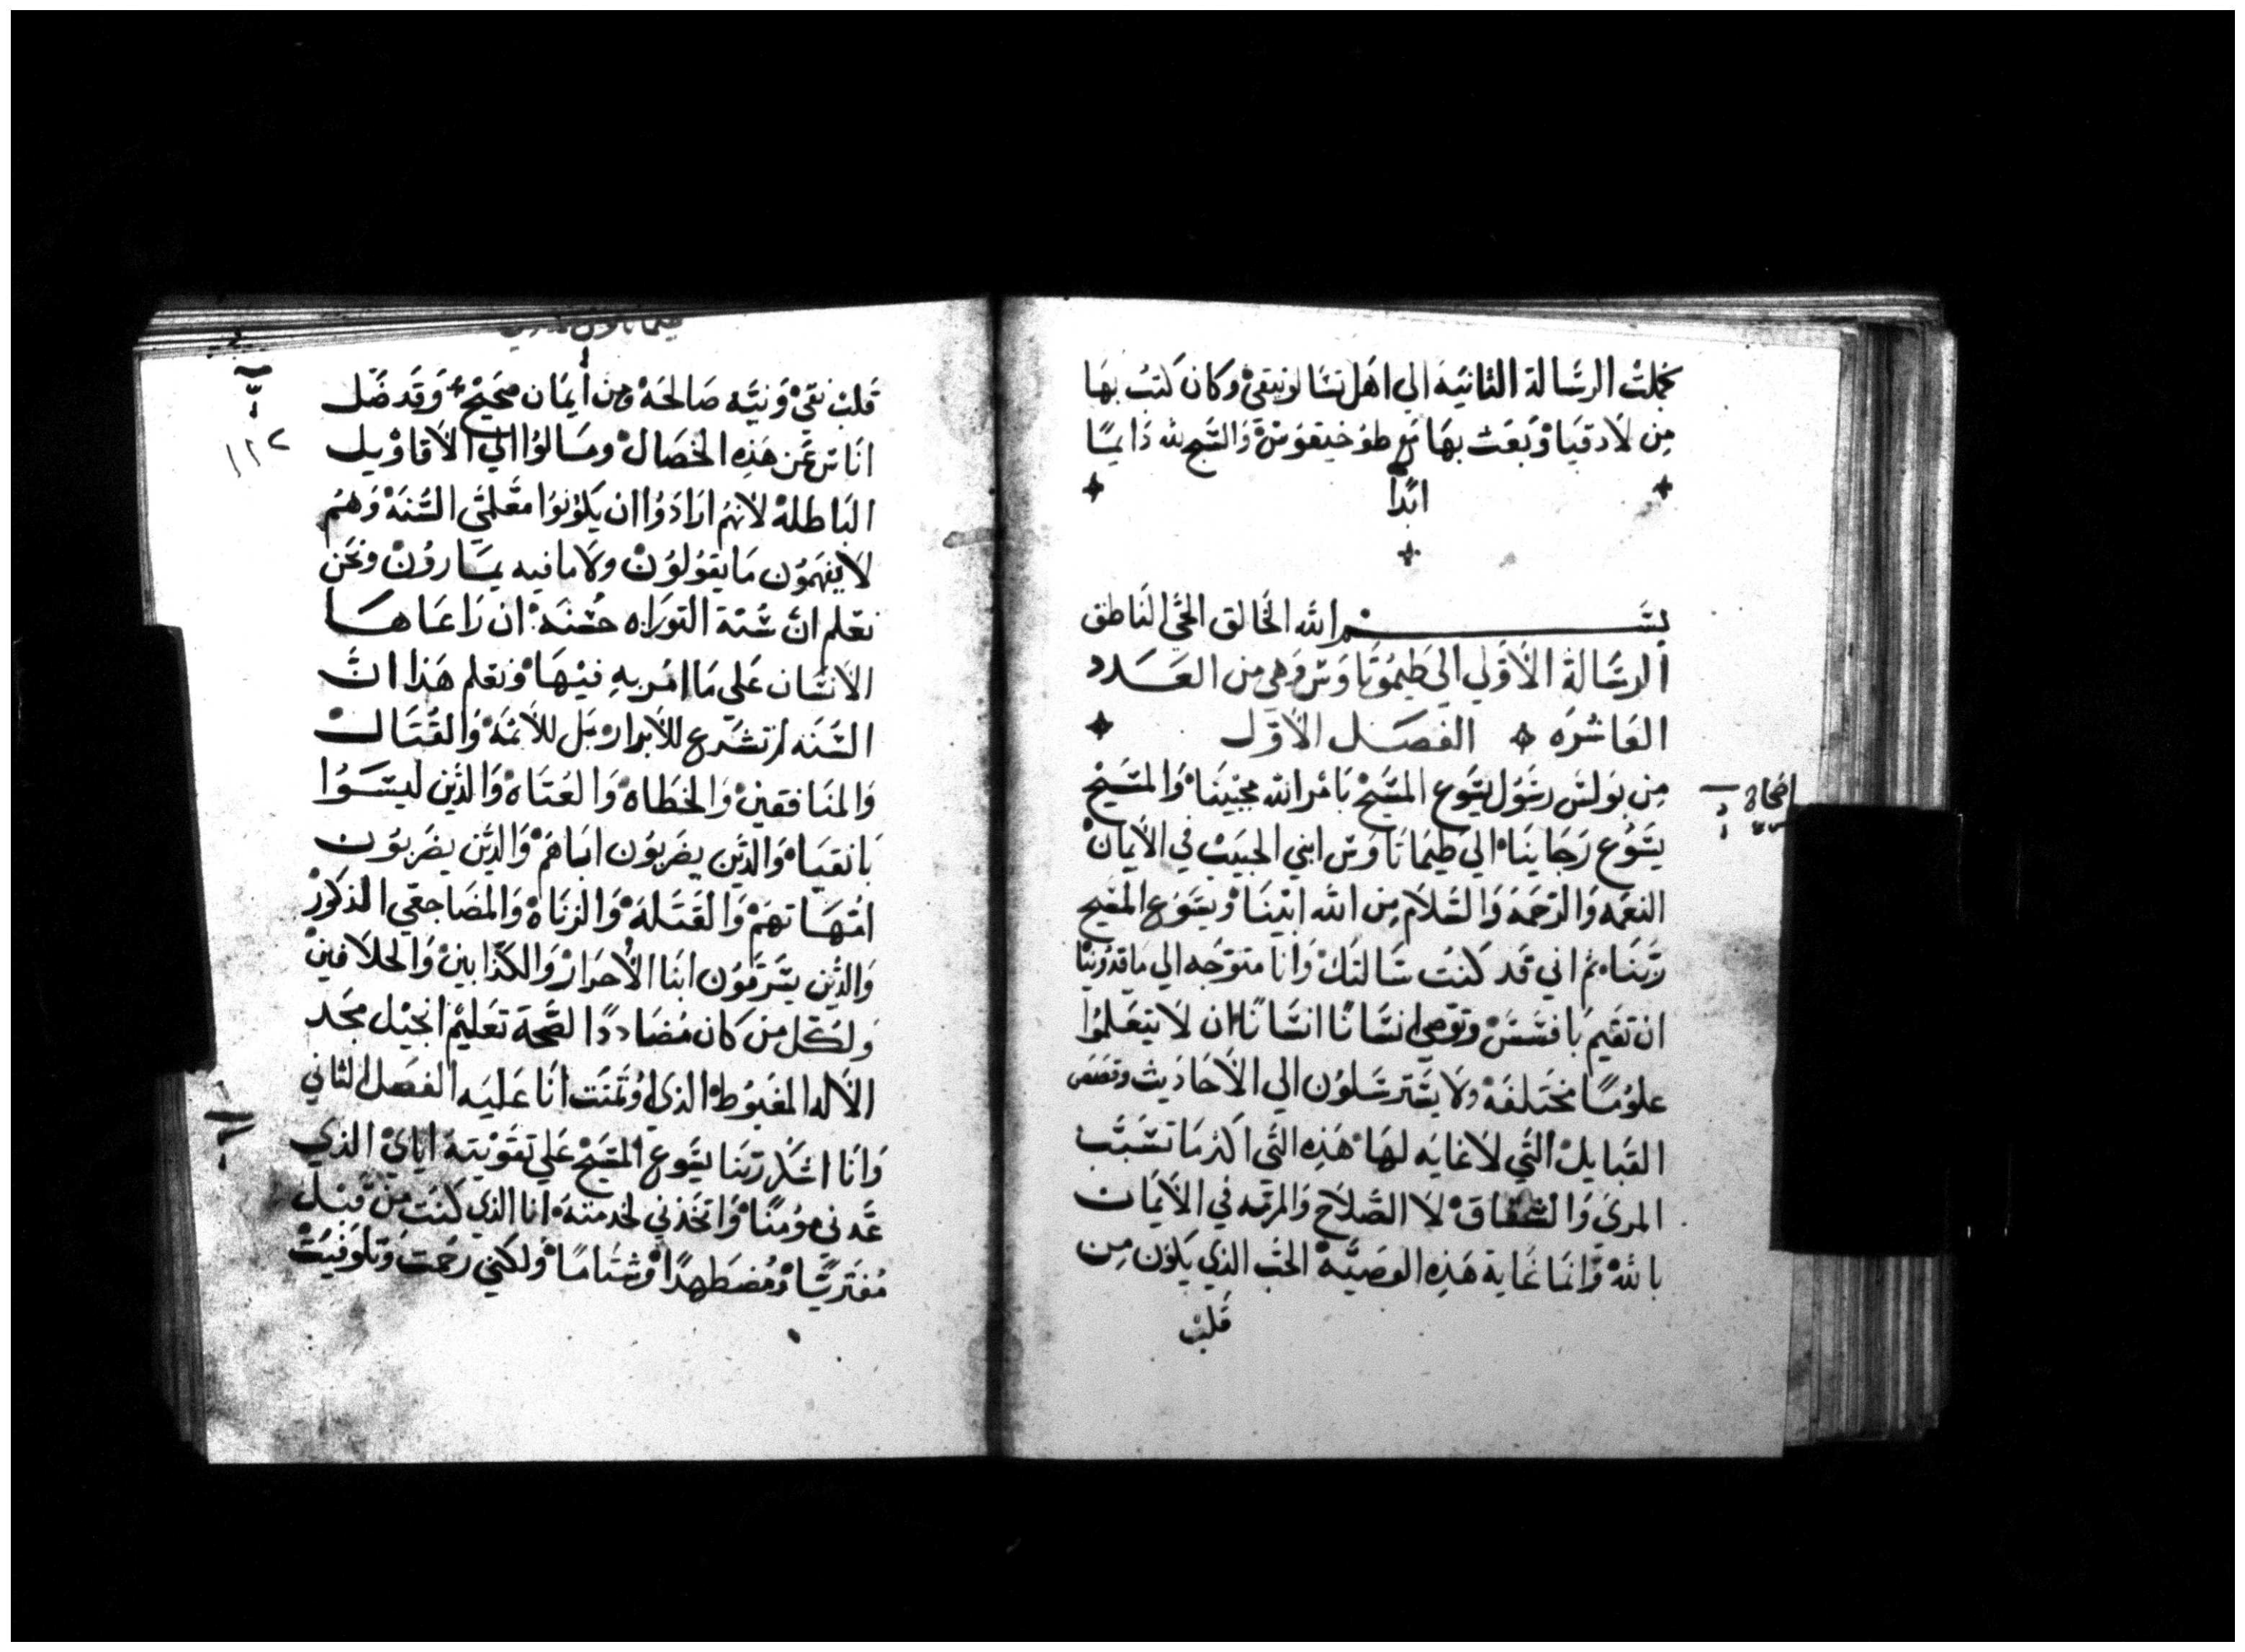 كملت الرسالة الثانيه الي اهل تسالونيقي وكان كتب بها
من لادقيا وبعث بها مع طوخيقوس والسبح لله دايمًا
ابدًا
بســــم الله الخالق الحي الناطق
الرسالة الأولي الي طيموتاوس وهي من العدد
العاشره الفصل الأول
اصحاح
من بولس رسول يسوع المسيح بامر الله محيينا والمسيح
يسوع رجاينا الي طيماتاوس ابني الحبيب في الأيمان
النعمه والرحمه والسلام من الله ابينا ويسوع المسيح
ربنا ثم اني قد كنت سالتك وانا متوجه الي ماقدونيا
ان تقيم بافسس وتوصي انسانًا انسانًا ان لا يتعلموا
علومًا مختلفه ولا يسترسلون الي الأحاديث وقصص
القبايل التي لا غايه لها هذه التي اكثر ما تسبب
المري والشقاق لا الصلاح والمرمه في الأيمان
بالله وانما غاية هذه الوصيه الحب الذي يكون من
قلب
١١٢
قلب نقي ونيه صالحه ومن ايمان صحيح وقد ضل
اناس عن هذه الخصال ومالوا الي الأقاويل
الباطله لانهم ارادوا ان يكونوا معلمي السنه وهم
لا يفهمون ما يقولون ولا ما فيه يمارون ونحن
نعلم ان سنة التوراه حسنه ان راعاها
الانسان علي ما امر به فيها ونعلم هذا ان
السنه لم تشرع للأبرار بل للأثمه والقتال
والمنافقين والخطاه والعتاه والذين ليسوا
بانقيا والذين يضربون اباهم والذين يضربون
امهاتهم والقتله والزناه والمضاجعي الذكور
والذين يسرقون ابنا الأحرار والكذابين والحلافين
ولكل من كان مضاددًا لصحة تعليم انجيل مجد
الأله المغبوط الذي اوتمنت انا عليه الفصل الثاني
وانا اشكر ربنا يسوع المسيح علي تقويته اياي الذي
عدني مومنًا واتخذني لخدمته انا الذي كنت من قبل
مفتريًا ومضطهدًا وشتامًا ولكني رحمت وتلوفيت